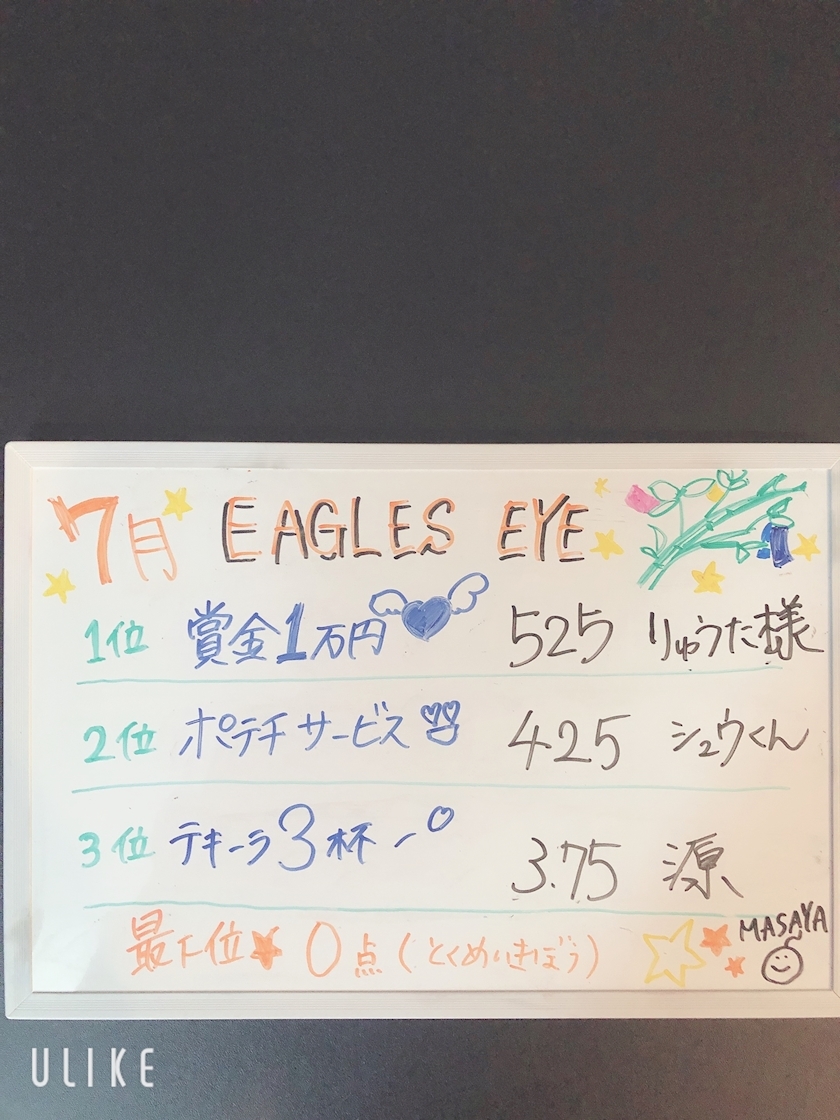 7月 EAGLES EYE
1位 賞金1万円 525 りゅうた様
2位 ポテチサービス 425 シュウくん
3位 テキーラ3杯 3.75 源
最下位 0点(とくめいきぼう)
MASAYA
ULIKE